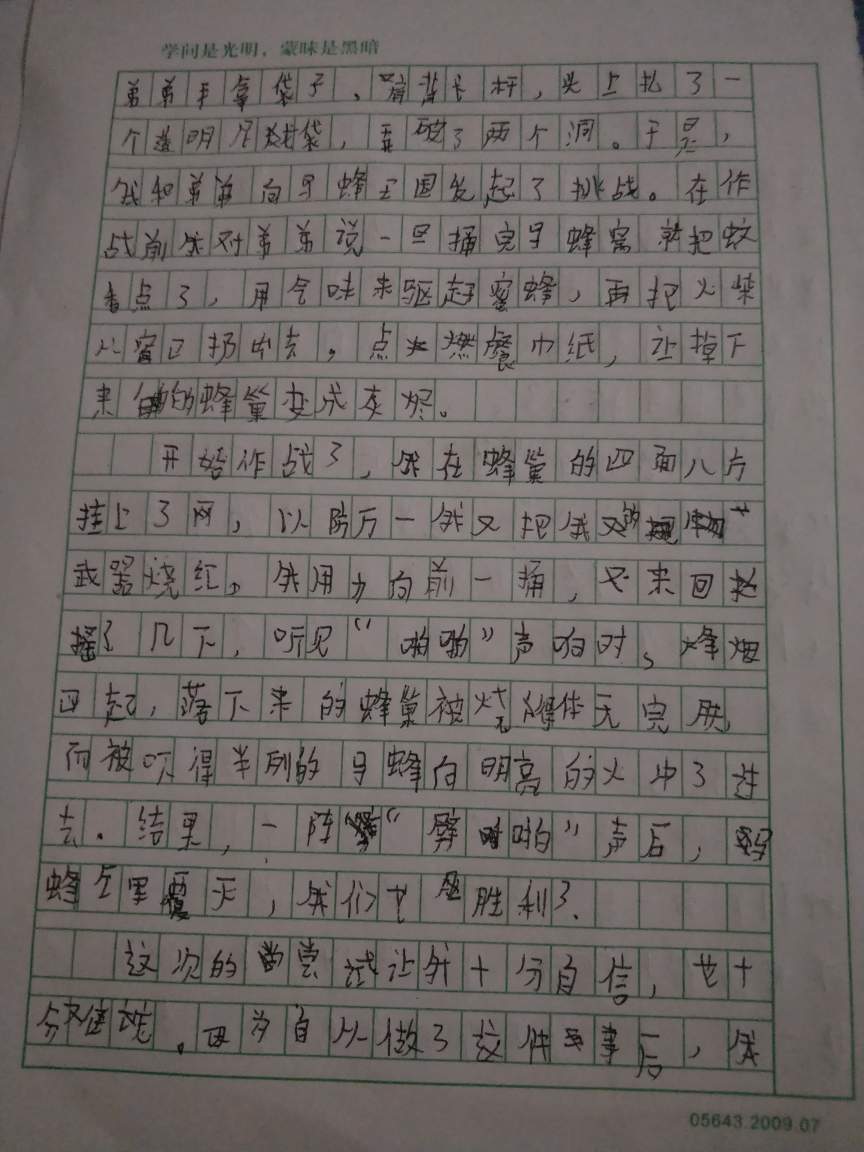 学问是光明，蒙昧是黑暗
弟弟手拿袋子，背长杆，头上扎了一
个透明尼袋，弄破了两个洞。于是，
我和弟弟向马蜂王国发起了挑战。在作
战前我对弟弟说一旦捅完马蜂窝就把蚊
香点了，用气味来驱赶蜜蜂，再把火柴
从窗口扔出去，点燃餐巾纸，让掉下
来的蜂巢变成灰烬。
开始作战了，我在蜂巢的四面八方
挂上了网，以防万一我又把我的
武器烧红。我用力向前一捅，又来回
摇了几下，听见“啪啪”声响时、烽烟
四起，落下来的蜂巢被烧得体无完肤，
而被吓得半刻的马蜂向明亮的火冲了进
去。结果，一阵“噼啪”声后，蚂
蜂全军覆灭，我们也胜利了。
这次的尝试让我十分自信，也十
分。因为自从做了这件事后，我
05643.2009.07